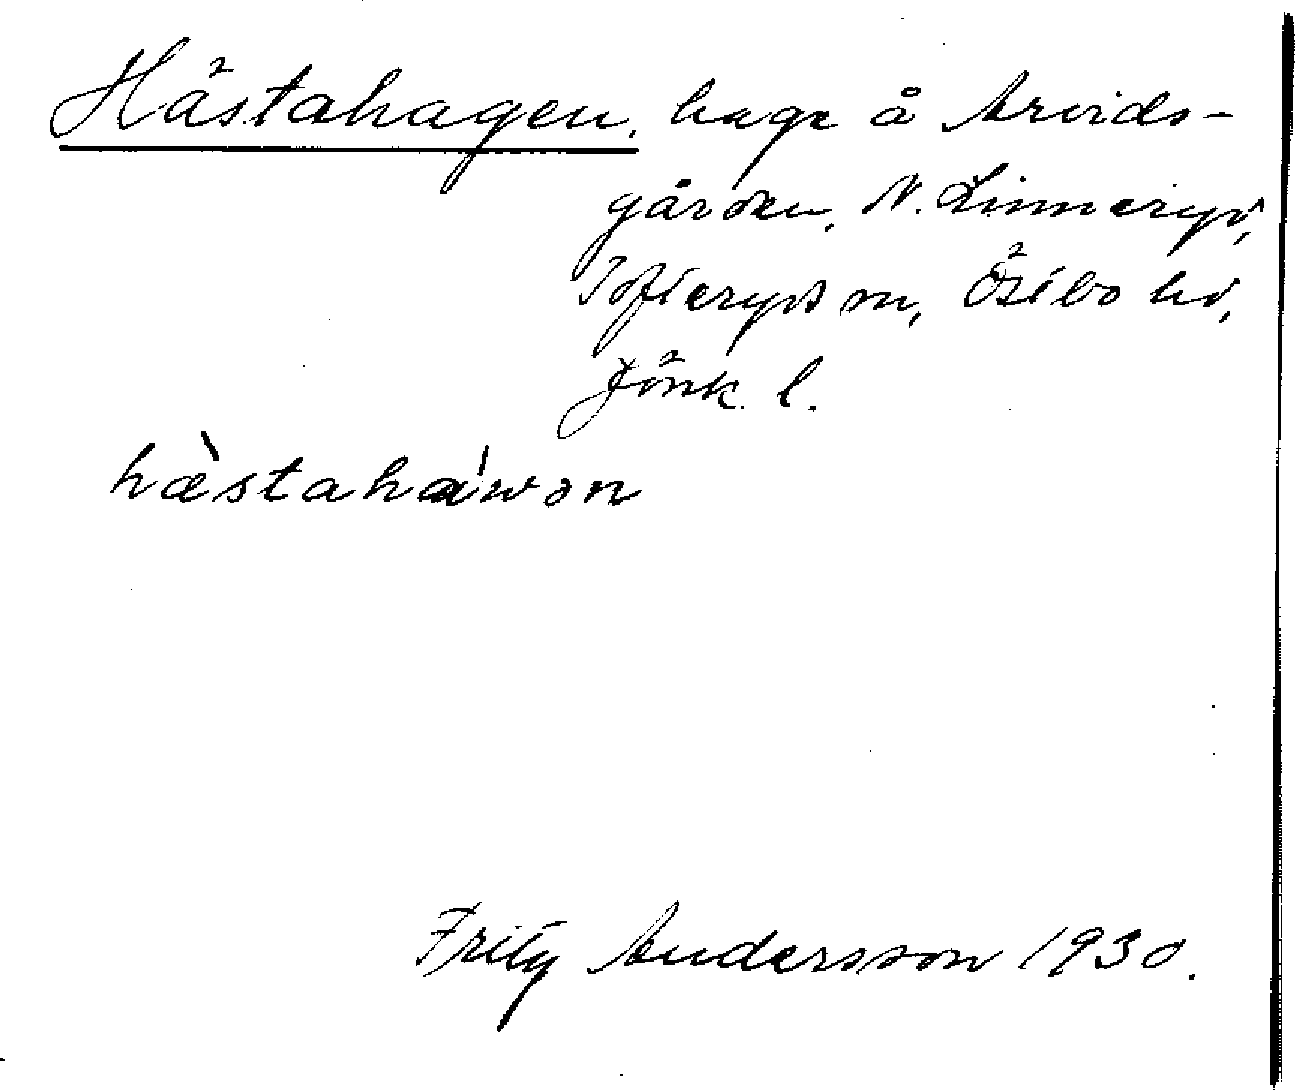 Hästahagen, hage å Arvids-
gården, N. Linneryd,
Tofteryds sn, Östbo hd,
Jönk. l.
hæ̀stahá'wən
Fritz Andersson 1930.